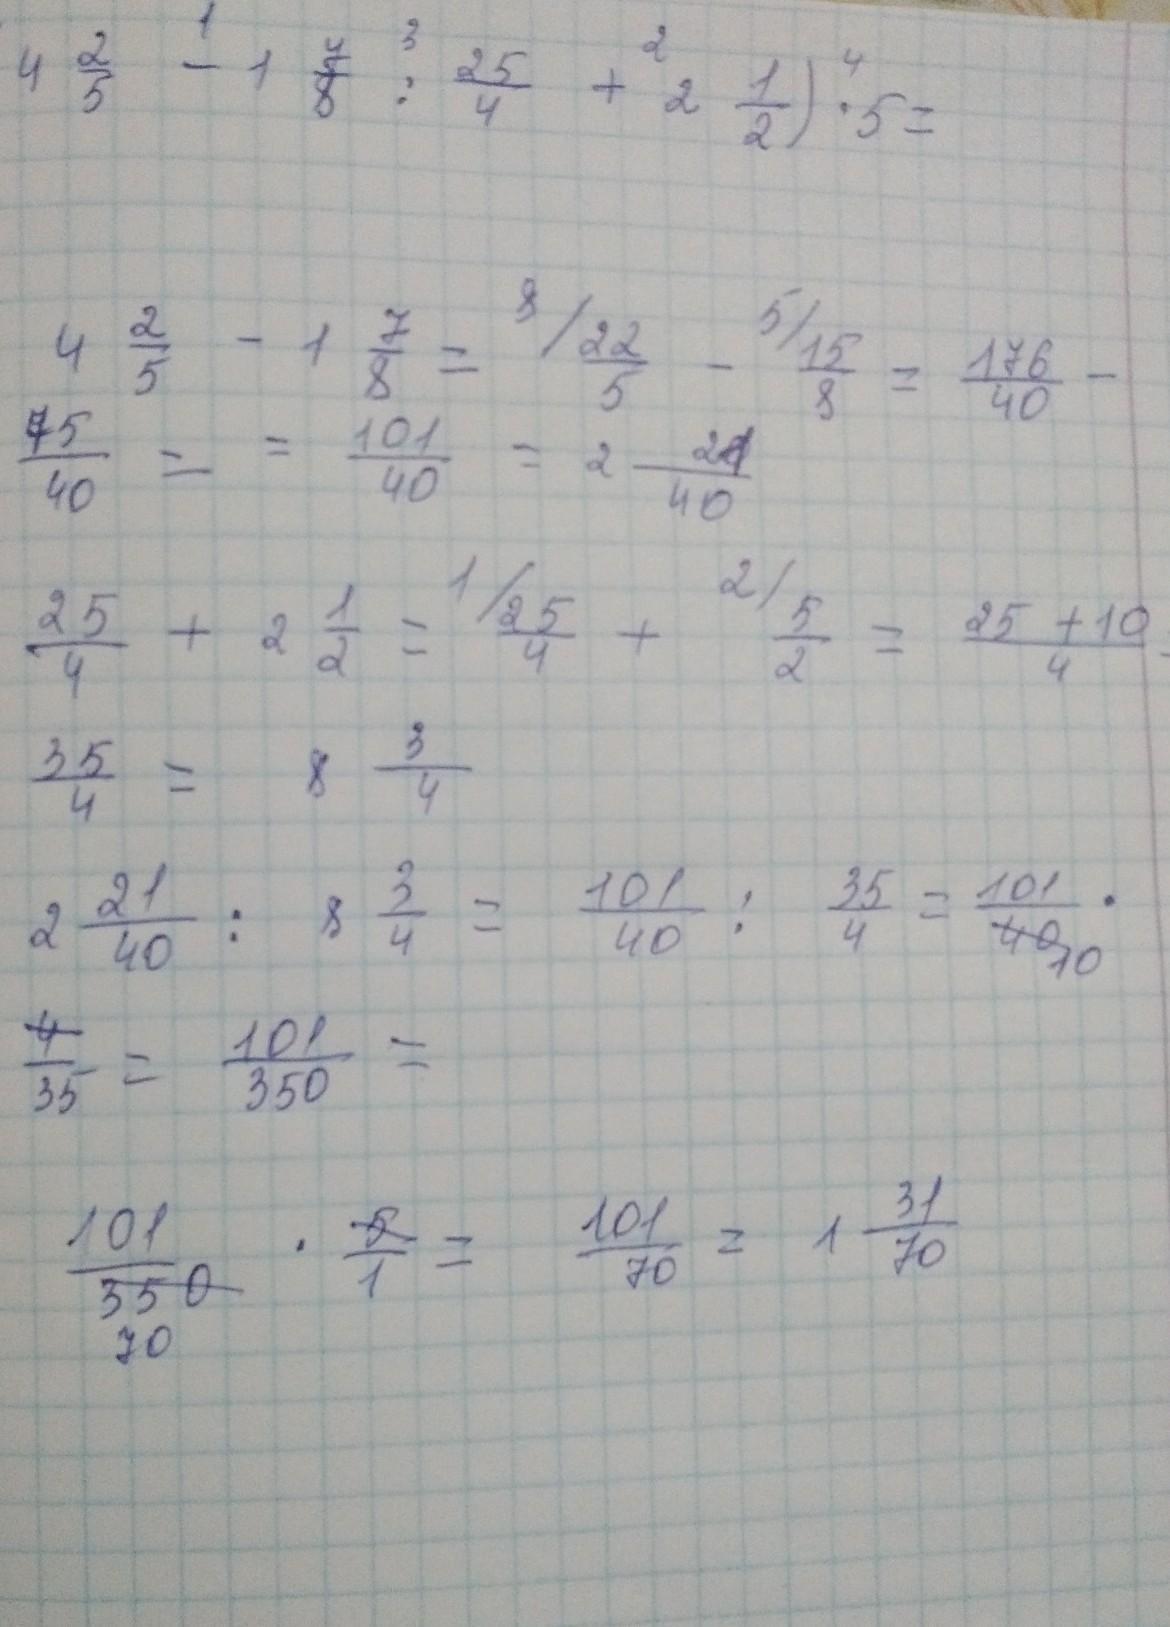 1 3 2 4
4 2/5 - 1 7/8 : 25/4 + 2 1/2) · 5 =
4 2/5 - 1 7/8 = 8/ 22/5 - 5/ 15/8 = 176/40 -
75/40 = = 101/40 = 2 21/40
25/4 + 2 1/2 = 1/ 25/4 + 2/ 5/2 = 25 + 10/4
35/4 = 8 3/4
2 21/40 : 8 3/4 = 101/40 : 35/4 = 101/40 10 ·
4/35 = 101/350 =
101/350 70 · 5/1 = 101/70 = 1 31/70